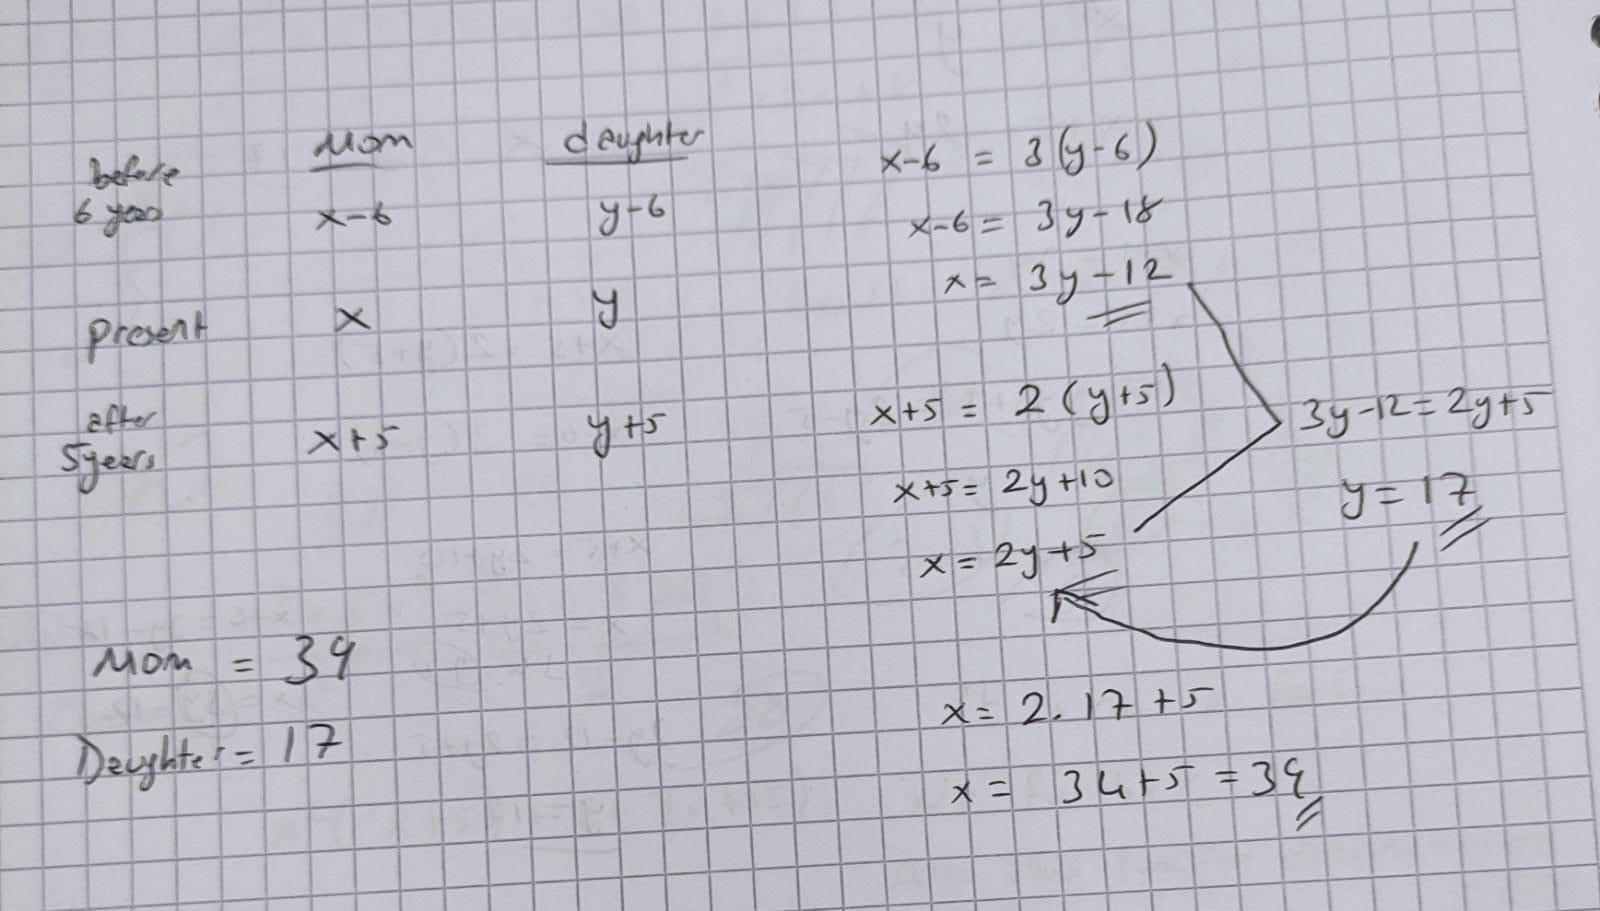 Mom daughter
before
6 years x-6 y-6
present x y
after
5 years x+5 y+5
x-6 = 3(y-6)
x-6 = 3y-18
x = 3y-12
x+5 = 2(y+5)
x+5 = 2y+10
x = 2y+5
3y-12 = 2y+5
y = 17
x = 2.17+5
x = 34+5 = 39
Mom = 39
Daughter = 17